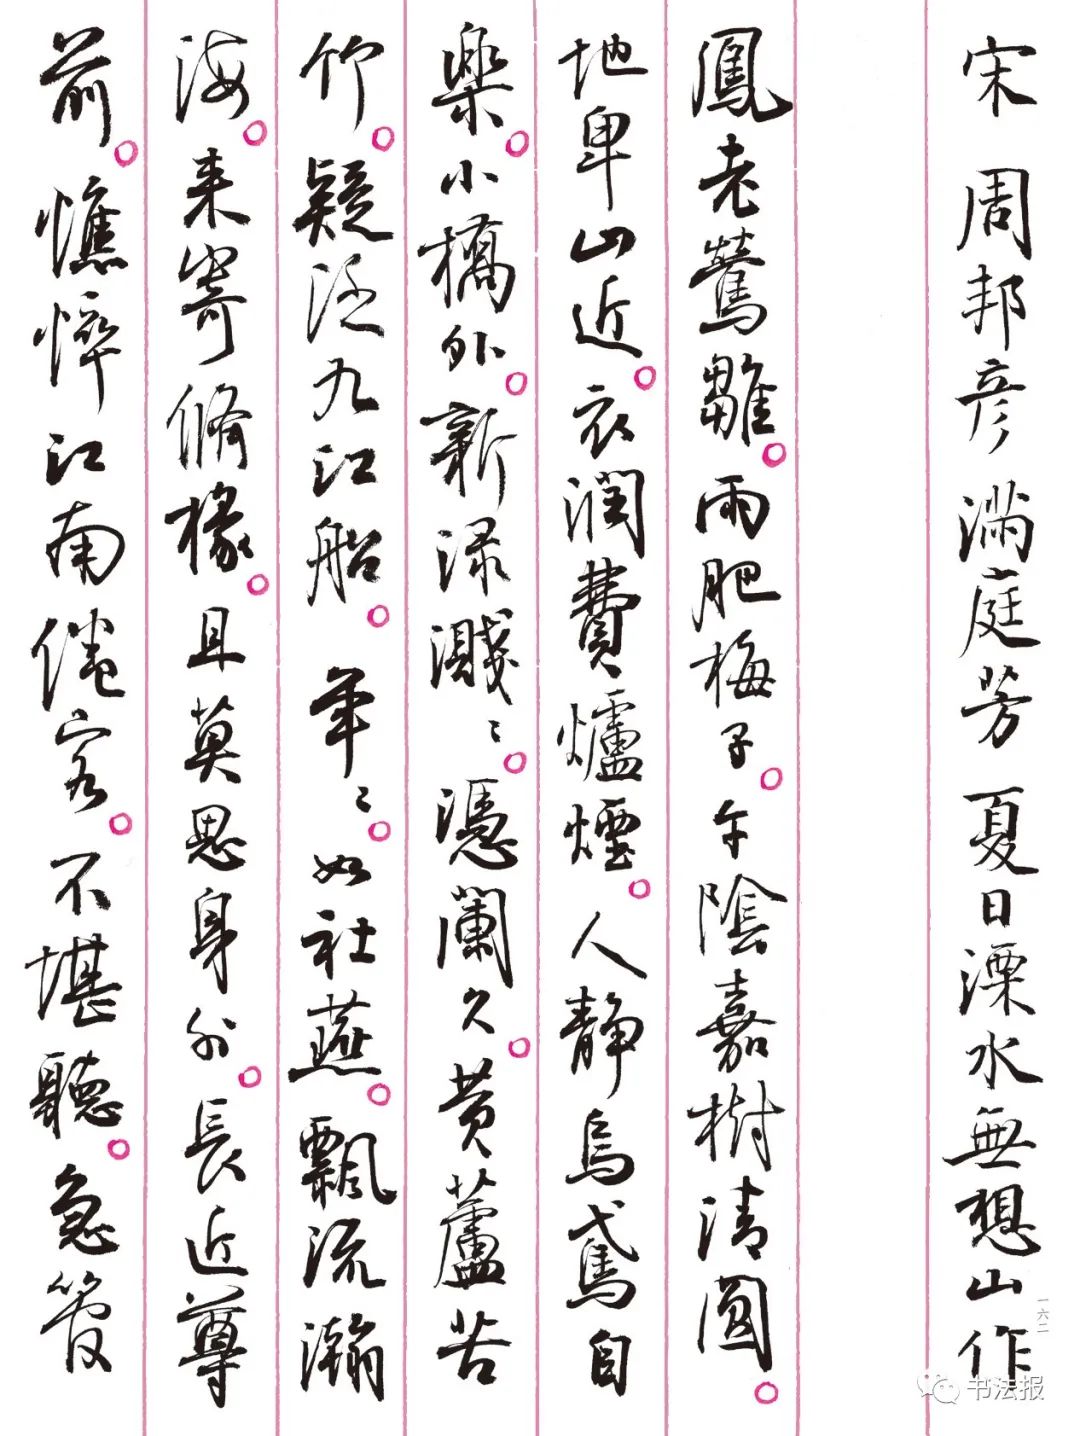 宋 周邦彦 滿庭芳 夏日溧水無想山作
鳳老鶯雛。雨肥梅子。午陰嘉樹清圓。
地卑山近。衣潤費爐煙。人靜烏鳶自
樂。小橋外。新淥濺〻。憑闌久。黄蘆苦
竹。疑泛九江船。 年〻。如社燕。飄流瀚
海。来寄脩椽。且莫思身外。長近尊
前。憔悴江南倦客。不堪聽。急管
一六二
书法报